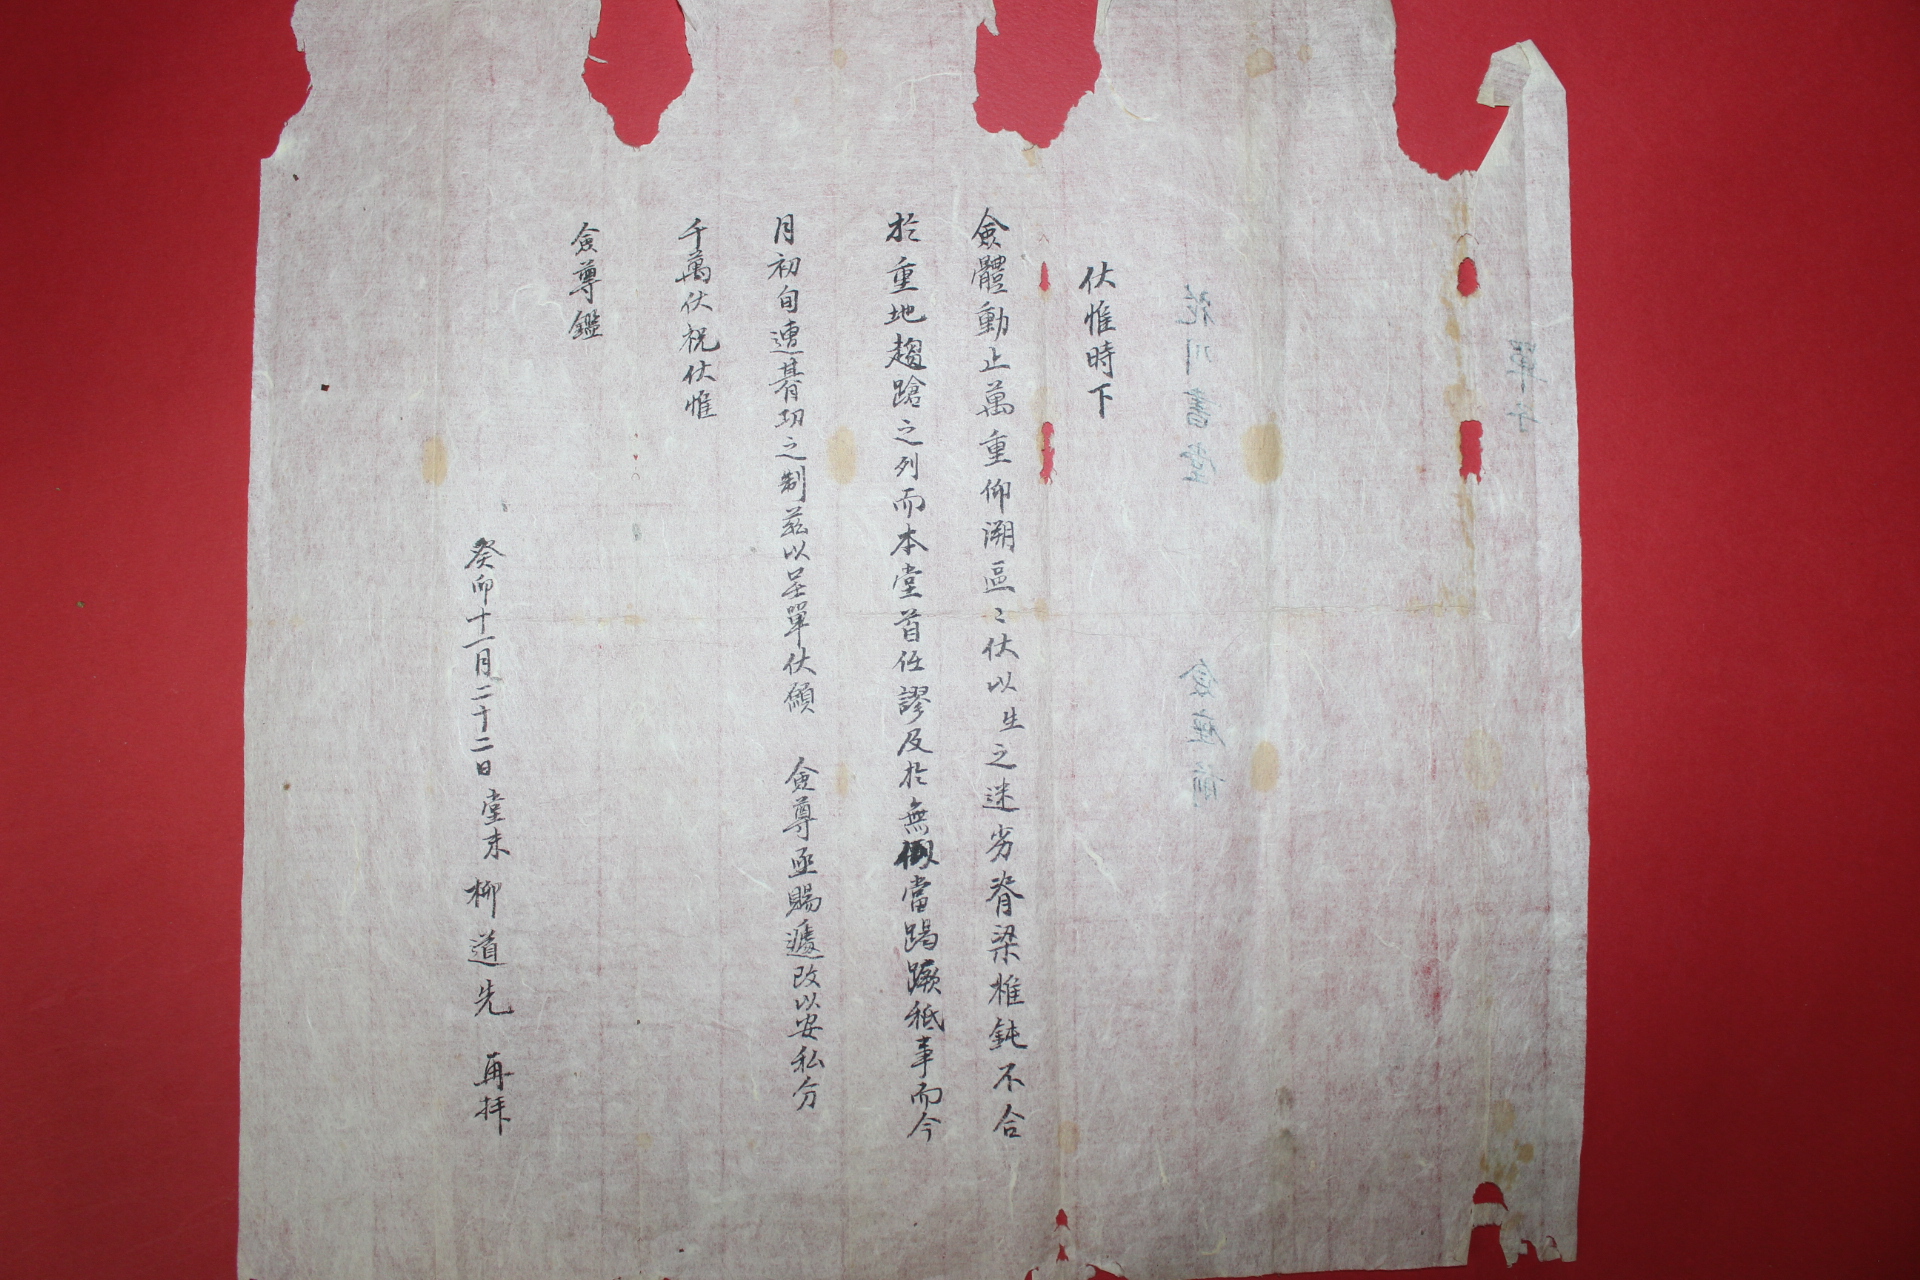 單子
花川書堂 僉座前
伏惟時下
僉體動止萬重仰溯區〻伏以生之迷劣脊梁椎鈍不合
於重地趨蹌之列而本堂首任謬及於無似當蹋蹶秪事而今
月初旬遭朞功之制玆以呈單伏願 僉尊亟賜遞改以安私分
千萬伏祝伏惟
僉尊鑑
癸卯十一月二十二日堂末柳道先 再拜